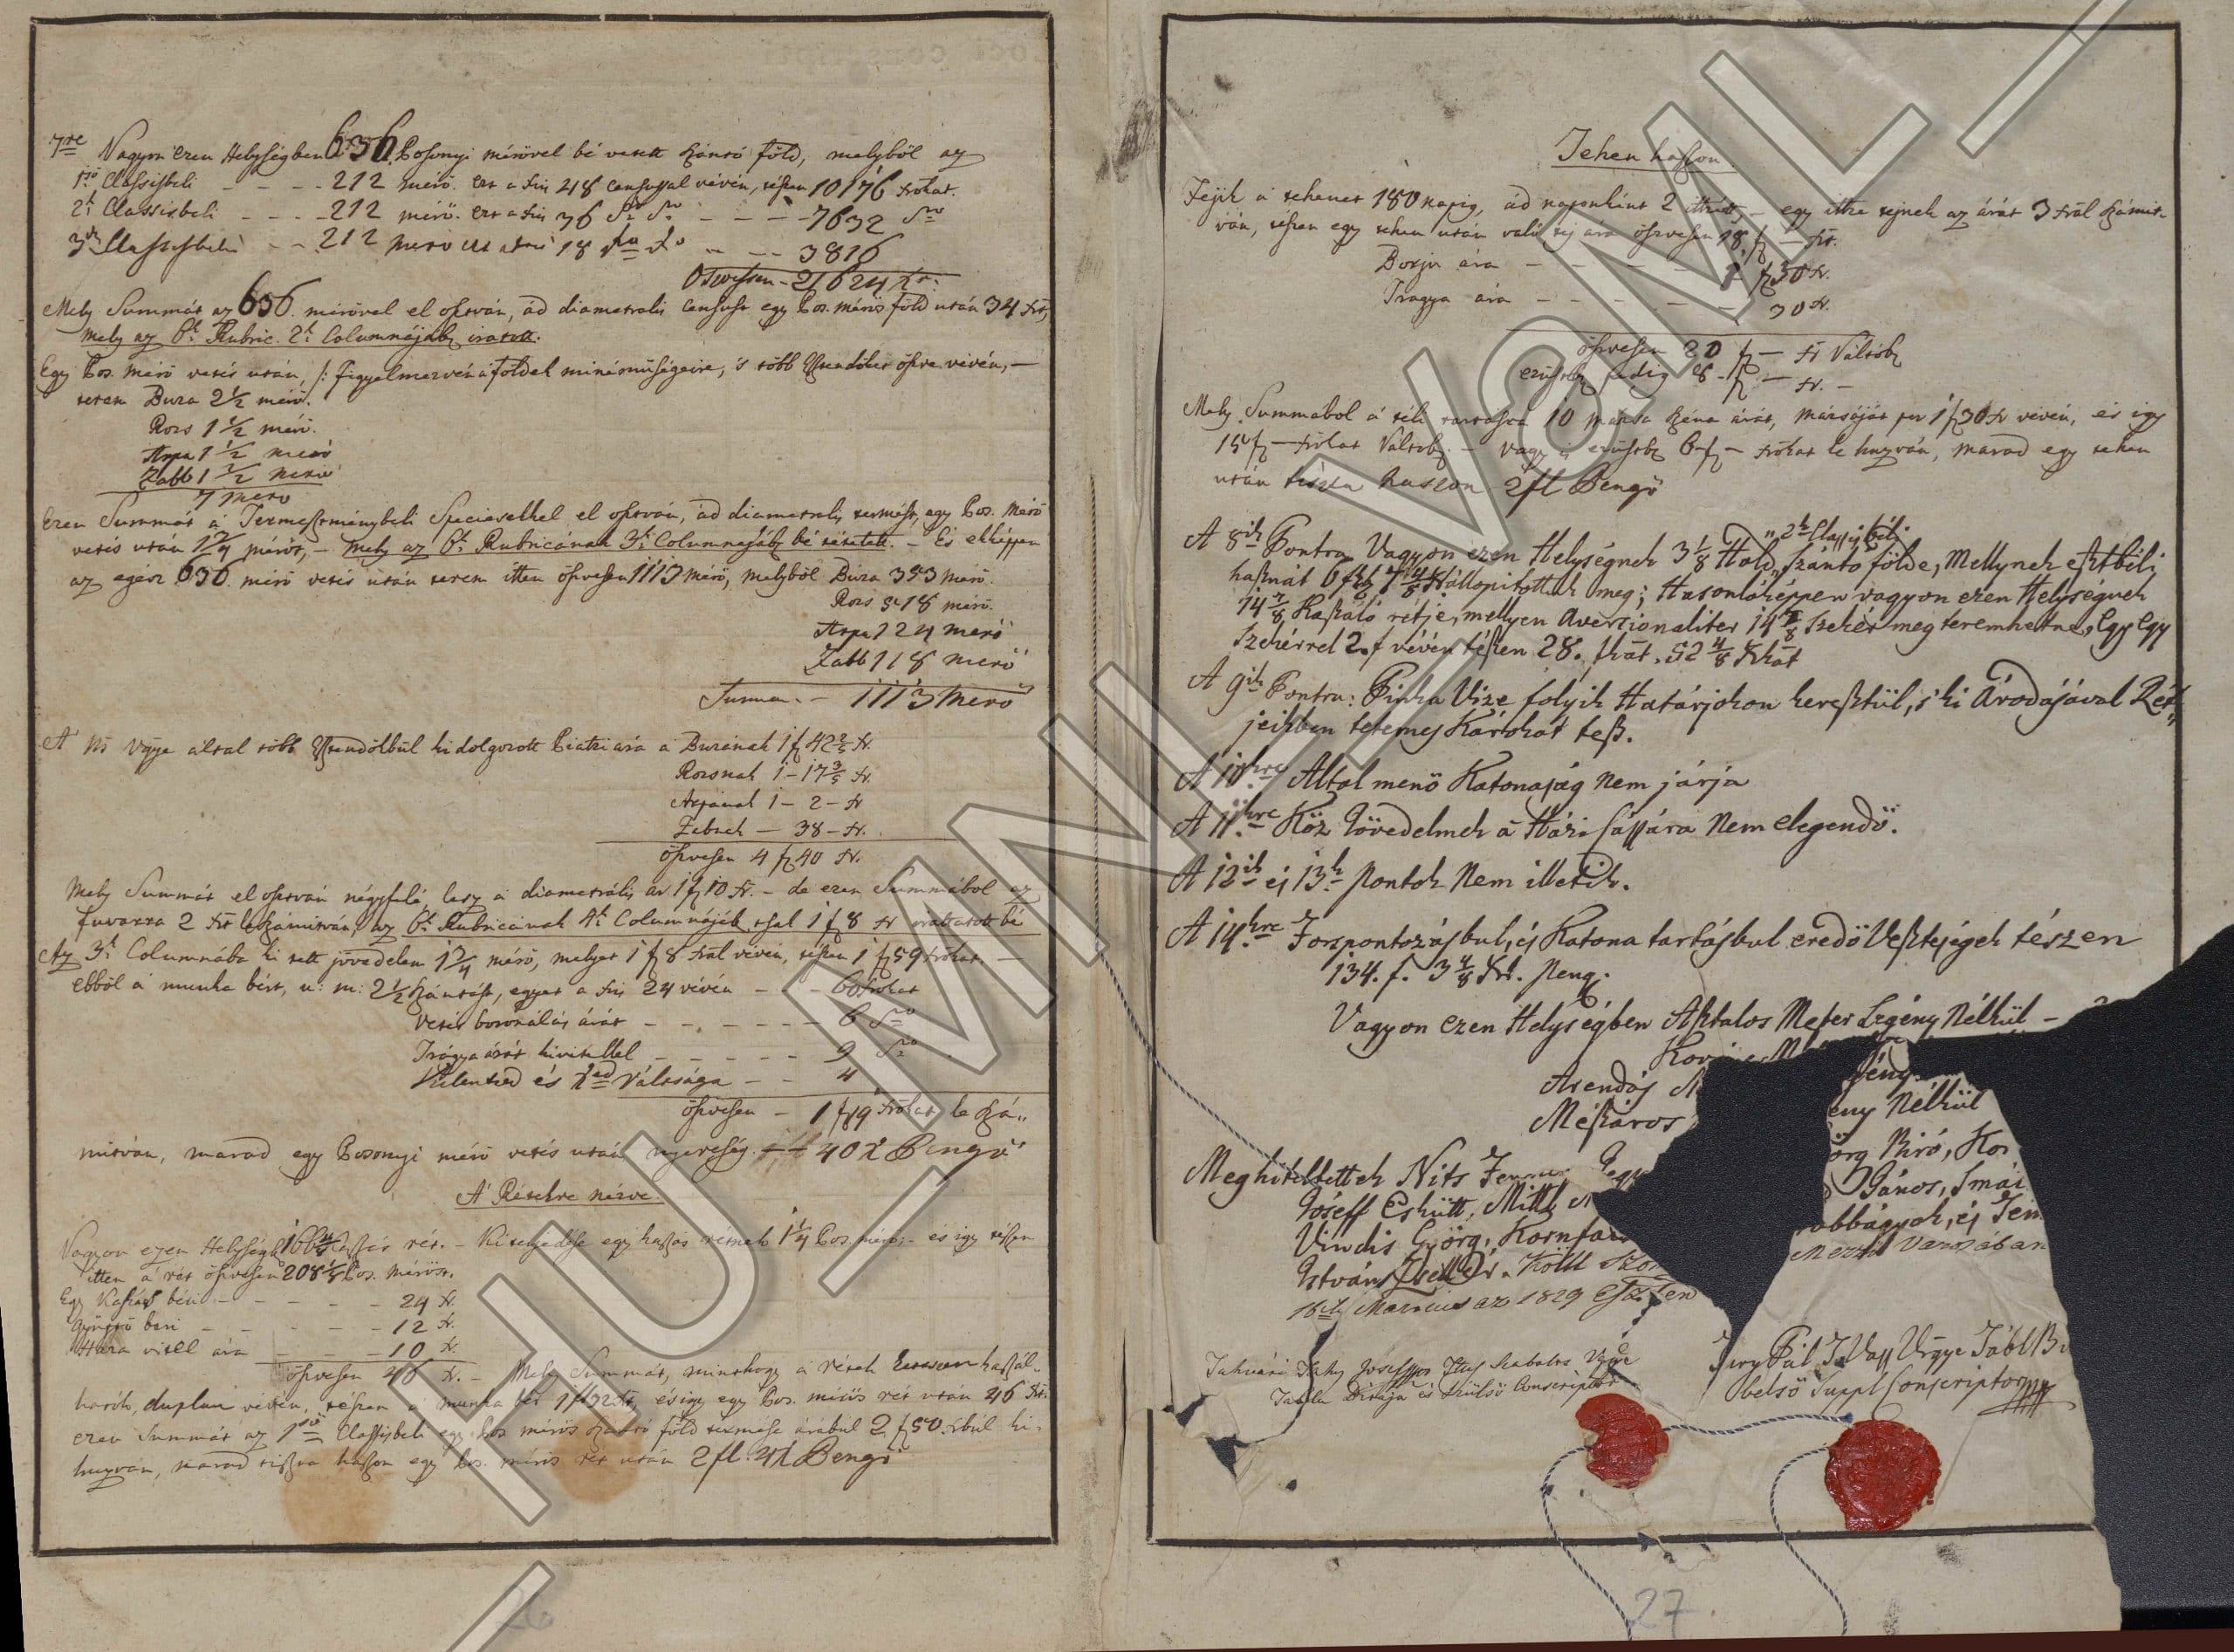 7re Nagyon ezen Helységben 636. Posonyi mérővel bé vetett szántó föld, melyből az
1ső Classisbeli - - - - 212 mérő. ezt a kr 48 censussal vévén, tészen 10176 krokat.
2k Classisbeli - - - - 212 mérő. ezt a kr 36 dto dto - - - - 7632 dto
3k Classisbeli - - 212 mérő ezt a kr 18 dto dto - - - 3816
Öszvesen - 21624 kr.
Mely Summát az 636. mérővel el osztván, ád diametralis censust egy Pos. mérős föld után 34 krt,
mely az 6k Rubric. 2k Columnájáb iratott.
Egy Pos. mérő vetés után, /: figyelmezvén a földek minéműségeire, 's több Esztendőket öszve vévén, -
terem Buza 2 1/2 mérő.
Rozs 1 1/2 mérő.
Árpa 1 1/2 mérő
Zabb 1 1/2 mérő
7 mérő
Ezen Summát a' Termesztménybeli Speciesekkel el osztván, ád diametralis termést, egy Pos. mérő
vetés után 1 3/4 mérőt, - mely az 6k Rubricának 3k Columnájáb bé tétetett. - És ekképpen
az egész 636. mérő vetés után terem itten öszvesen 1113 mérő, melyből Búza 353 mérő.
Rozs 518 mérő.
Árpa 124 mérő
Zabb 118 mérő
Summa. - 1113 mérő
A' Ns Vgye által több Esztendőkbül ki dolgozott Piatzi ára a Buzának 1 f 42 2/5 kr.
Rozsnak 1 - 17 3/5 kr.
Árpának 1 - 2 - kr
Zabnak - 38 - kr.
öszvesen 4 f 40 kr.
Mely Summát el osztván négyfelé, lesz a' diametrális ár 1 f 10 kr. - de ezen Summából az
fuvarra 2 krt le számitván, az 6k Rubricának 4k Columnájáb tsak 1 f 8 kr irattatott bé
Az 3k Columnába ki tett jövedelem 1 3/4 mérő, melyet 1 f 8 kral vévén, tészen 1 f 59 krokat. -
ebből a' munka bért, u: m: 2 1/2 szántást, egyet a kr 24 vévén - - - 60 krokat
Vetés boronálás árát - - . - - - - 6 dto
Trágya árát kivitellel - - - - - 9 dto
Kilentzed és Tized váltsága - - 4
öszvesen - 1 f 19 krokat le szá-
mitván, marad egy Posonyi mérő vetés után nyereség - - 40 X Pengő
A' Rétekre nézve
Vagyon ezen Helységb 166 4/8 kaszás rét. - Kiterjedése egy kaszás rétnek 1 1/4 Pos. mérő. - és igy tészen
itten a' rét öszvesen 208 1/8 Pos. mérőst.
Egy Kaszás béri - - - - - 24 kr.
Gyűjtő béri - - - - - 12 kr.
Haza vitell ára - - - 10 kr.
öszvesen 46 kr. - Mely Summát, minthogy a' rétek kaszál-
tatók, duplán vévén, tészen a' munka bér 1 f 32 kr, és igy egy Pos. mérős rét után 46 kr.
ezen Summát az 1ső Classisbeli egy Pos mérős szántó föld termése árábul 2 f 50 krbúl ki-
huzván, marad tiszta haszon egy Pos. mérős rét után 2 fl. 4 X Pengő
Tehen haszon
Fejik a' tehenet 180 napig, ád naponkint 2 ittzét, - egy ittze tejnek az árát 3 kral számit-
ván, tészen egy tehen után való tej ára öszvesen 18 f - kr.
Borju ára - - - - - 1 f 30 kr.
Tragya ára - - - - - - 30 kr.
öszvesen 20 f - kr Váltób
ezüstb pedig 8 - f - kr. -
Mely Summából a' téli tartásra 10 mázsa széna árát, mázsáját per 1 f 30 kr vévén, és igy
15 f - krokat Váltób. - vagy is ezüstb 6 f - krokat le huzván, marad egy tehen
után tiszta haszon 2 fl Pengő
A 8ik Pontra Vagyon ezen Helységnek 3 1/8 Hold „2k Classisbéli Szánto földe, Mellynek esztbéli
hasznát 6 f állopitottuk meg; Hasonlóképpen vagyon ezen Helységnek
14 7/8 Kaszáló rétje, mellyen Averzionaliter 14 Szekér meg teremhetne, Egy Egy
Szekérrel 2. f vévén tészen 28. fkat. 52 4/8 Krkat
A 9ik Pontra: Pinka Vize folyik Határjokon keresztül, 's ki Árodásával Rét-
jeikben tetemes Károkat tesz.
A 10kre Által menő Katonaság Nem járja
A 11kre Köz Jövedelmek a Házi Cassára Nem elegendő.
A 12ik és 13k pontok Nem illetik.
A 14kre Forspontozásbul, és Katona tartásbul eredő Veszteségek tészen
134. f. 3 4/8 Kr. peng.
Vagyon ezen Helységben Asztalos Mester Legény Nélkül -
Ková
Arendás
Mészáros ény Nélkül
Meghiteltettek Nits örg Biró, Kor
Jóseff Esküt, Mittl János, Smái
Vindis Györg, Kornfai obbágyok, és
István Zsellér. Költt Városában
16ik Martius az 1829 Eszten
Tábla Birája és Külső Conscriptor
Pál T. Vass Vrgye Tábl Bi
belső Suppl Conscriptor
27.
HU_MNL_VaML_